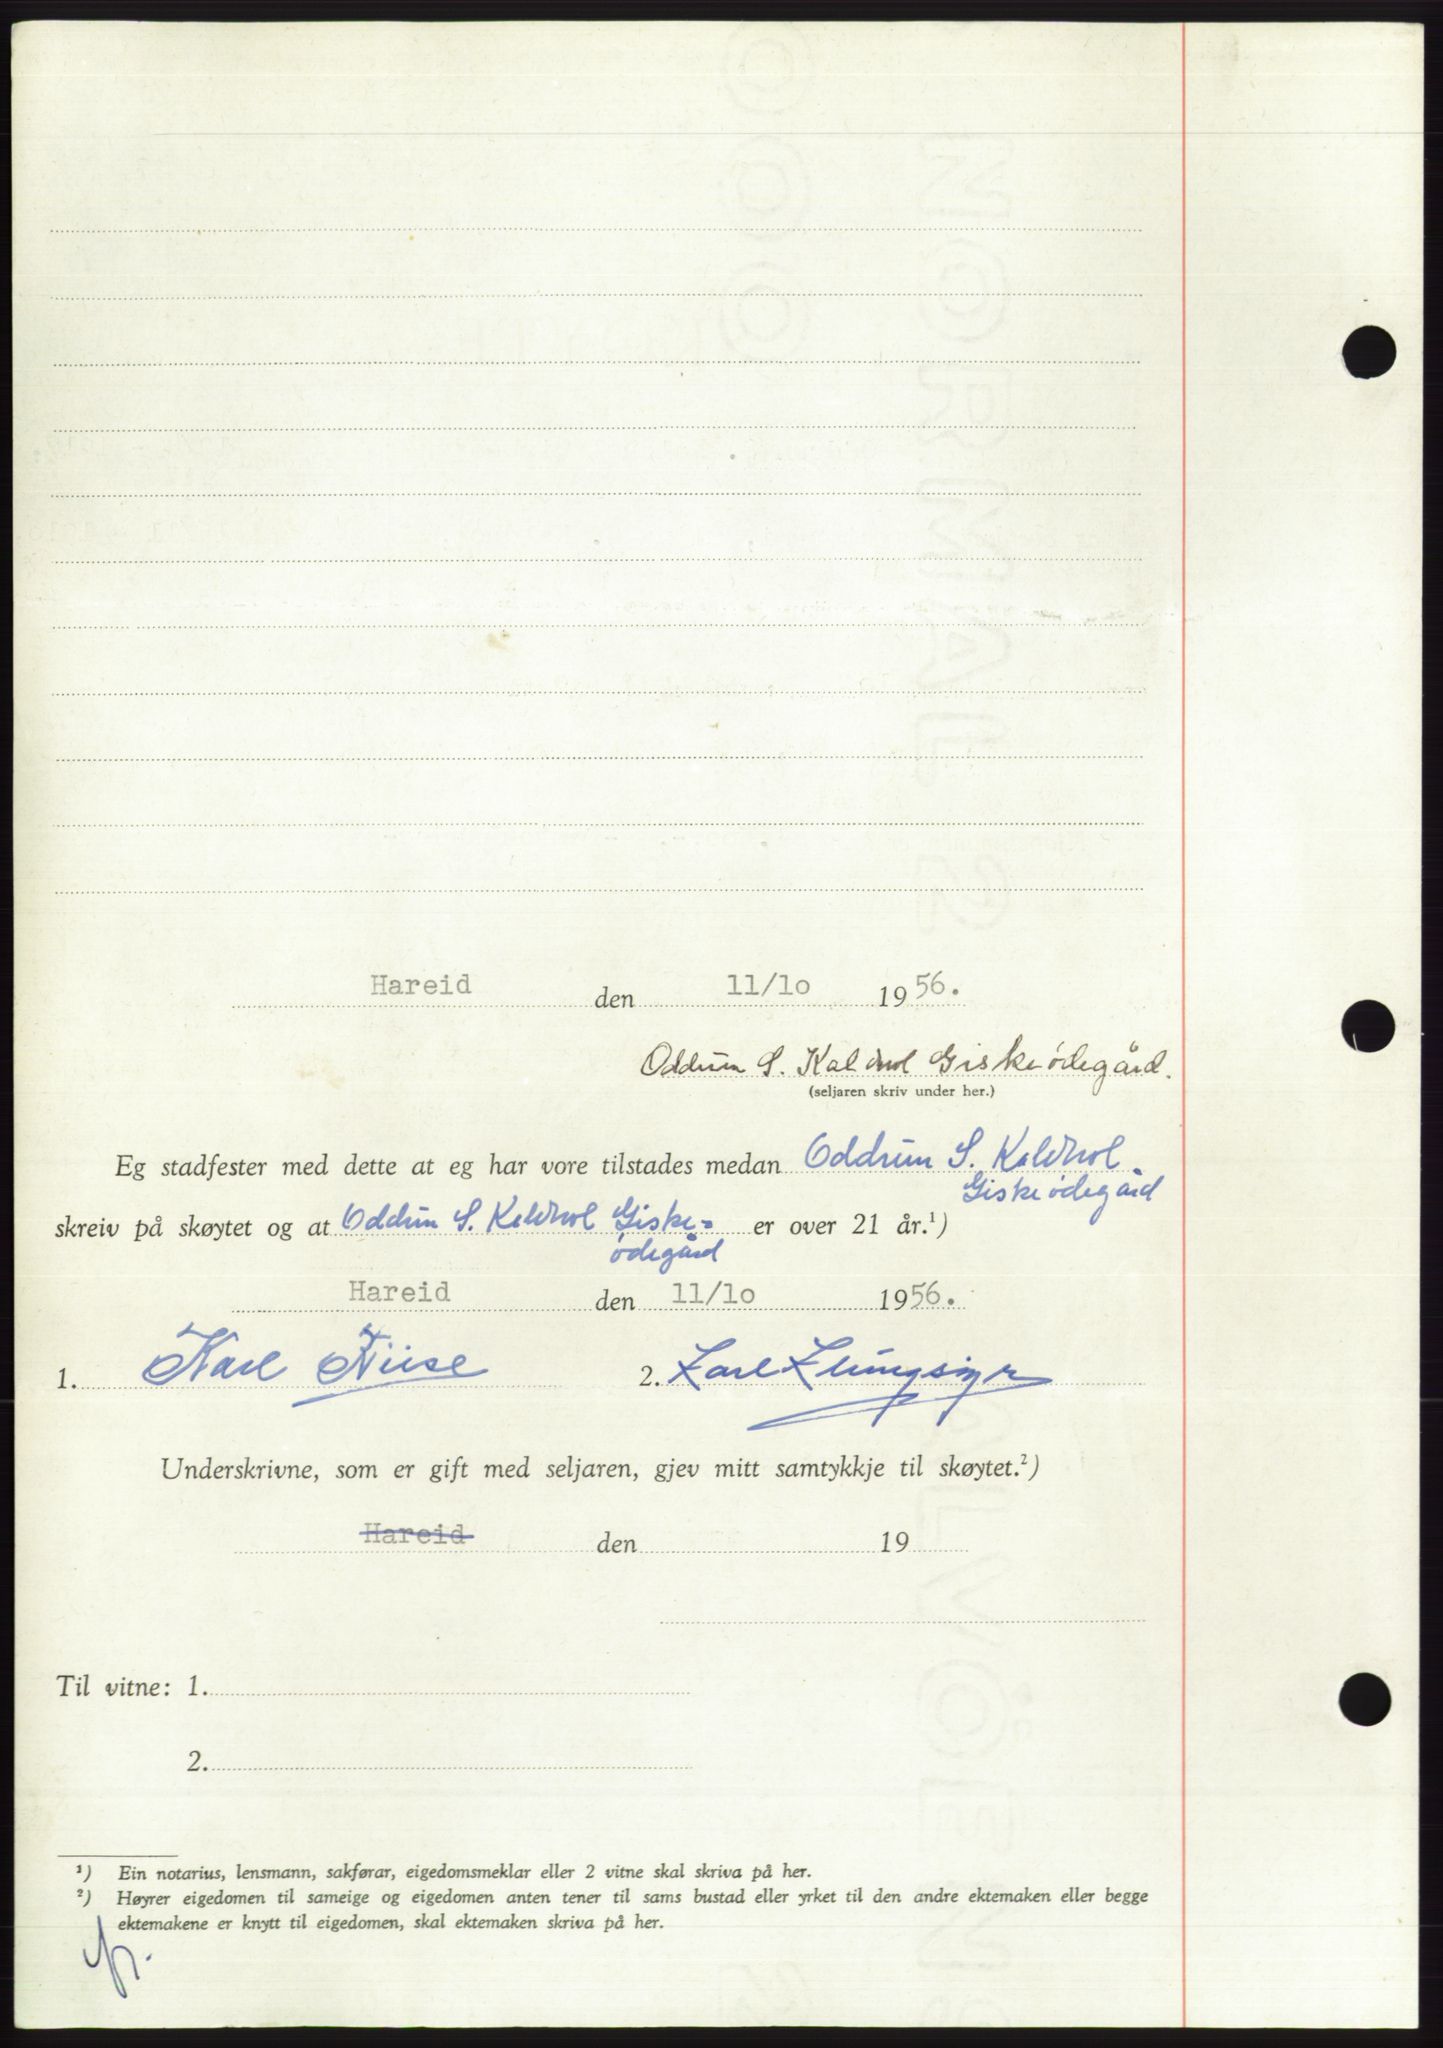 Hareid den 11/10 1956.
Oddrun S. Kaldhol Giskeødegård.
(seljaren skriv under her.)
Eg stadfester med dette at eg har vore tilstades medan Oddrun S. Kaldhol
Giskeødegård
skreiv på skøytet og at Oddrun S. Kaldhol Giske-
ødegård er over 21 år.¹)
Hareid den 11/10 1956.
1. Karl Riise 2. Karl
Underskrivne, som er gift med seljaren, gjev mitt samtykkje til skøytet.²)
Hareid den 19
Til vitne: 1.
2.
¹) Ein notarius, lensmann, sakførar, eigedomsmeklar eller 2 vitne skal skriva på her.
²) Høyrer eigedomen til sameige og eigedomen anten tener til sams bustad eller yrket til den andre ektemaken eller begge
ektemakene er knytt til eigedomen, skal ektemaken skriva på her.